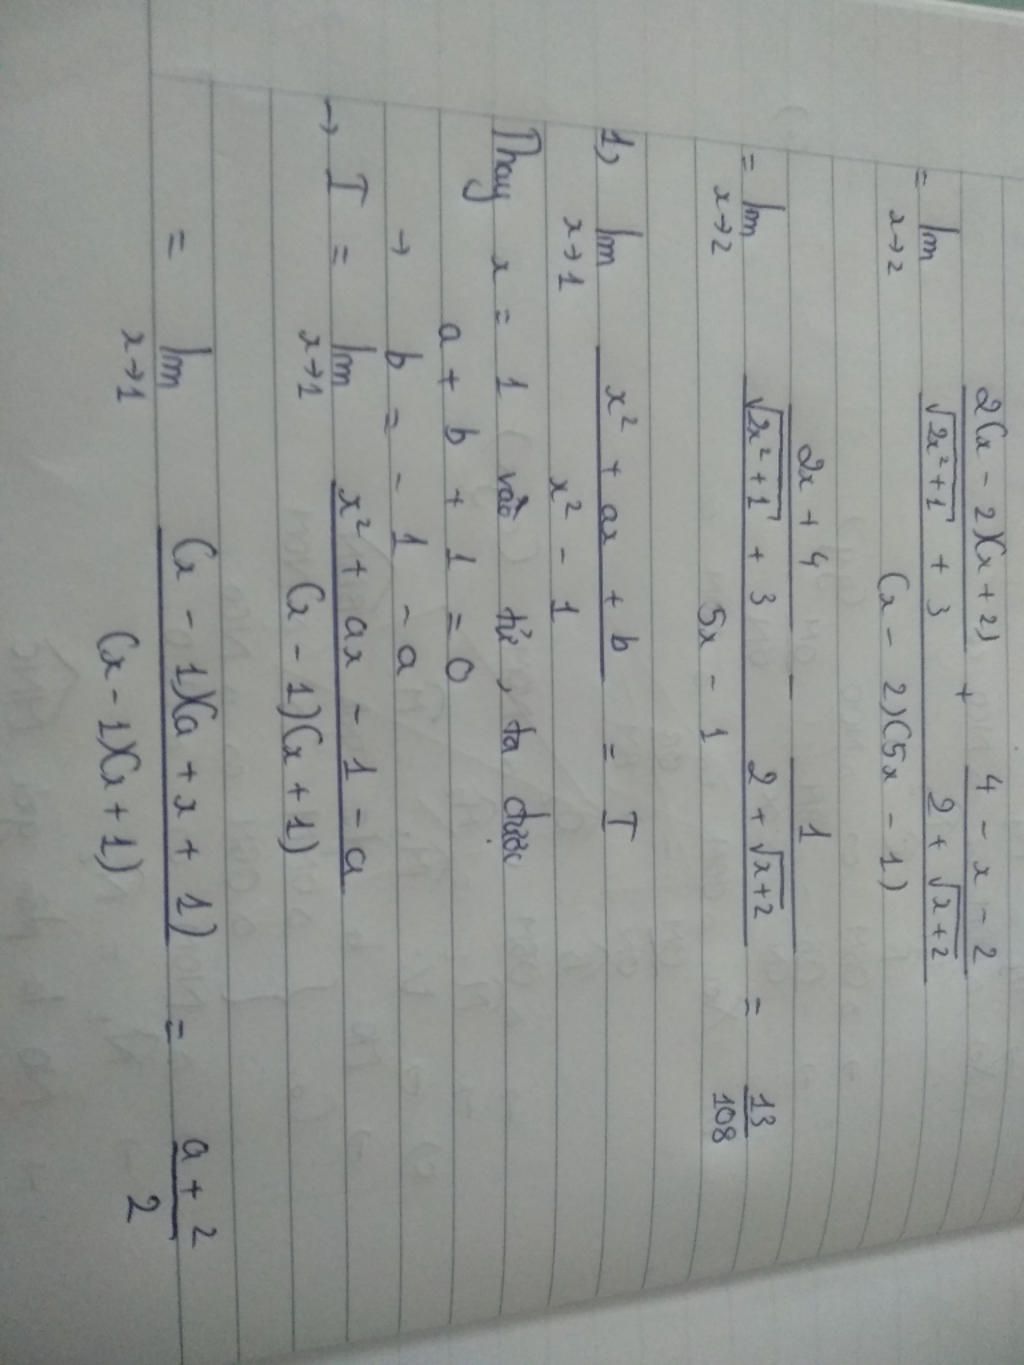 = lim x→2 (2(x - 2)(x + 2)/(√(2x² + 1) + 3) + (4 - x - 2)/(2 + √(x+2)))/((x - 2)(5x - 1))
= lim x→2 ((2x + 4)/(√(2x² + 1) + 3) - 1/(2 + √(x+2)))/(5x - 1) = 13/108
1, lim x→1 (x² + ax + b)/(x² - 1) = I
Thay x = 1 (vào) tử, ta được
a + b + 1 = 0
→ b = - 1 - a
→ I = lim x→1 (x² + ax - 1 - a)/((x - 1)(x + 1))
= lim x→1 ((x - 1)(a + x + 1))/((x - 1)(x + 1)) = (a + 2)/2